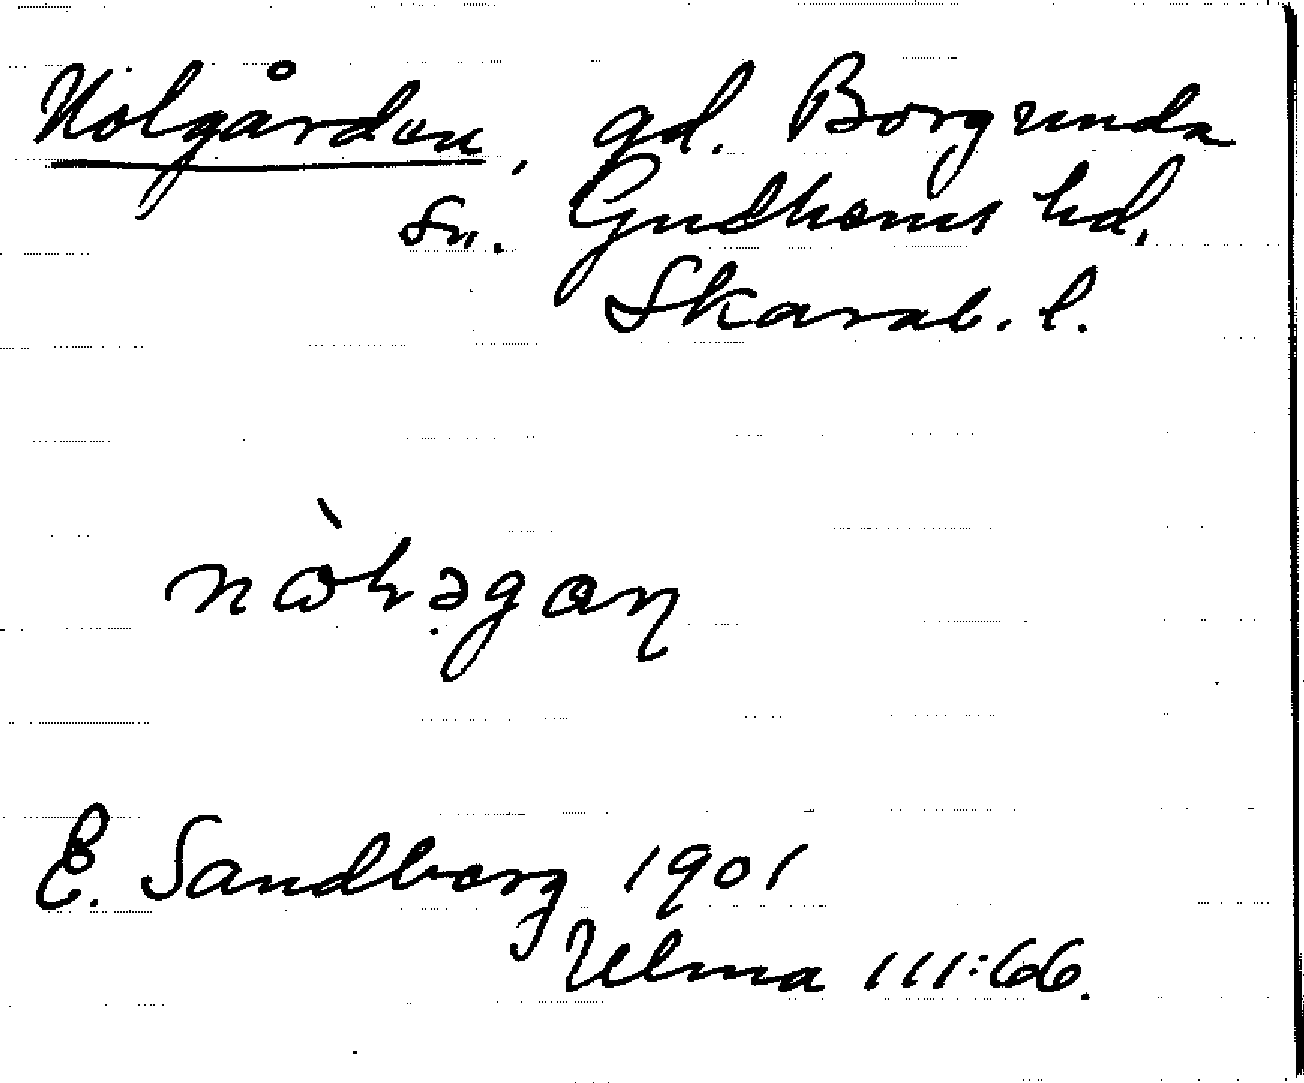 Nolgården, gd. Borgunda
sn. Gudhems hd,
Skarab. l.
E. Sandberg 1901
Ulma 111:66.